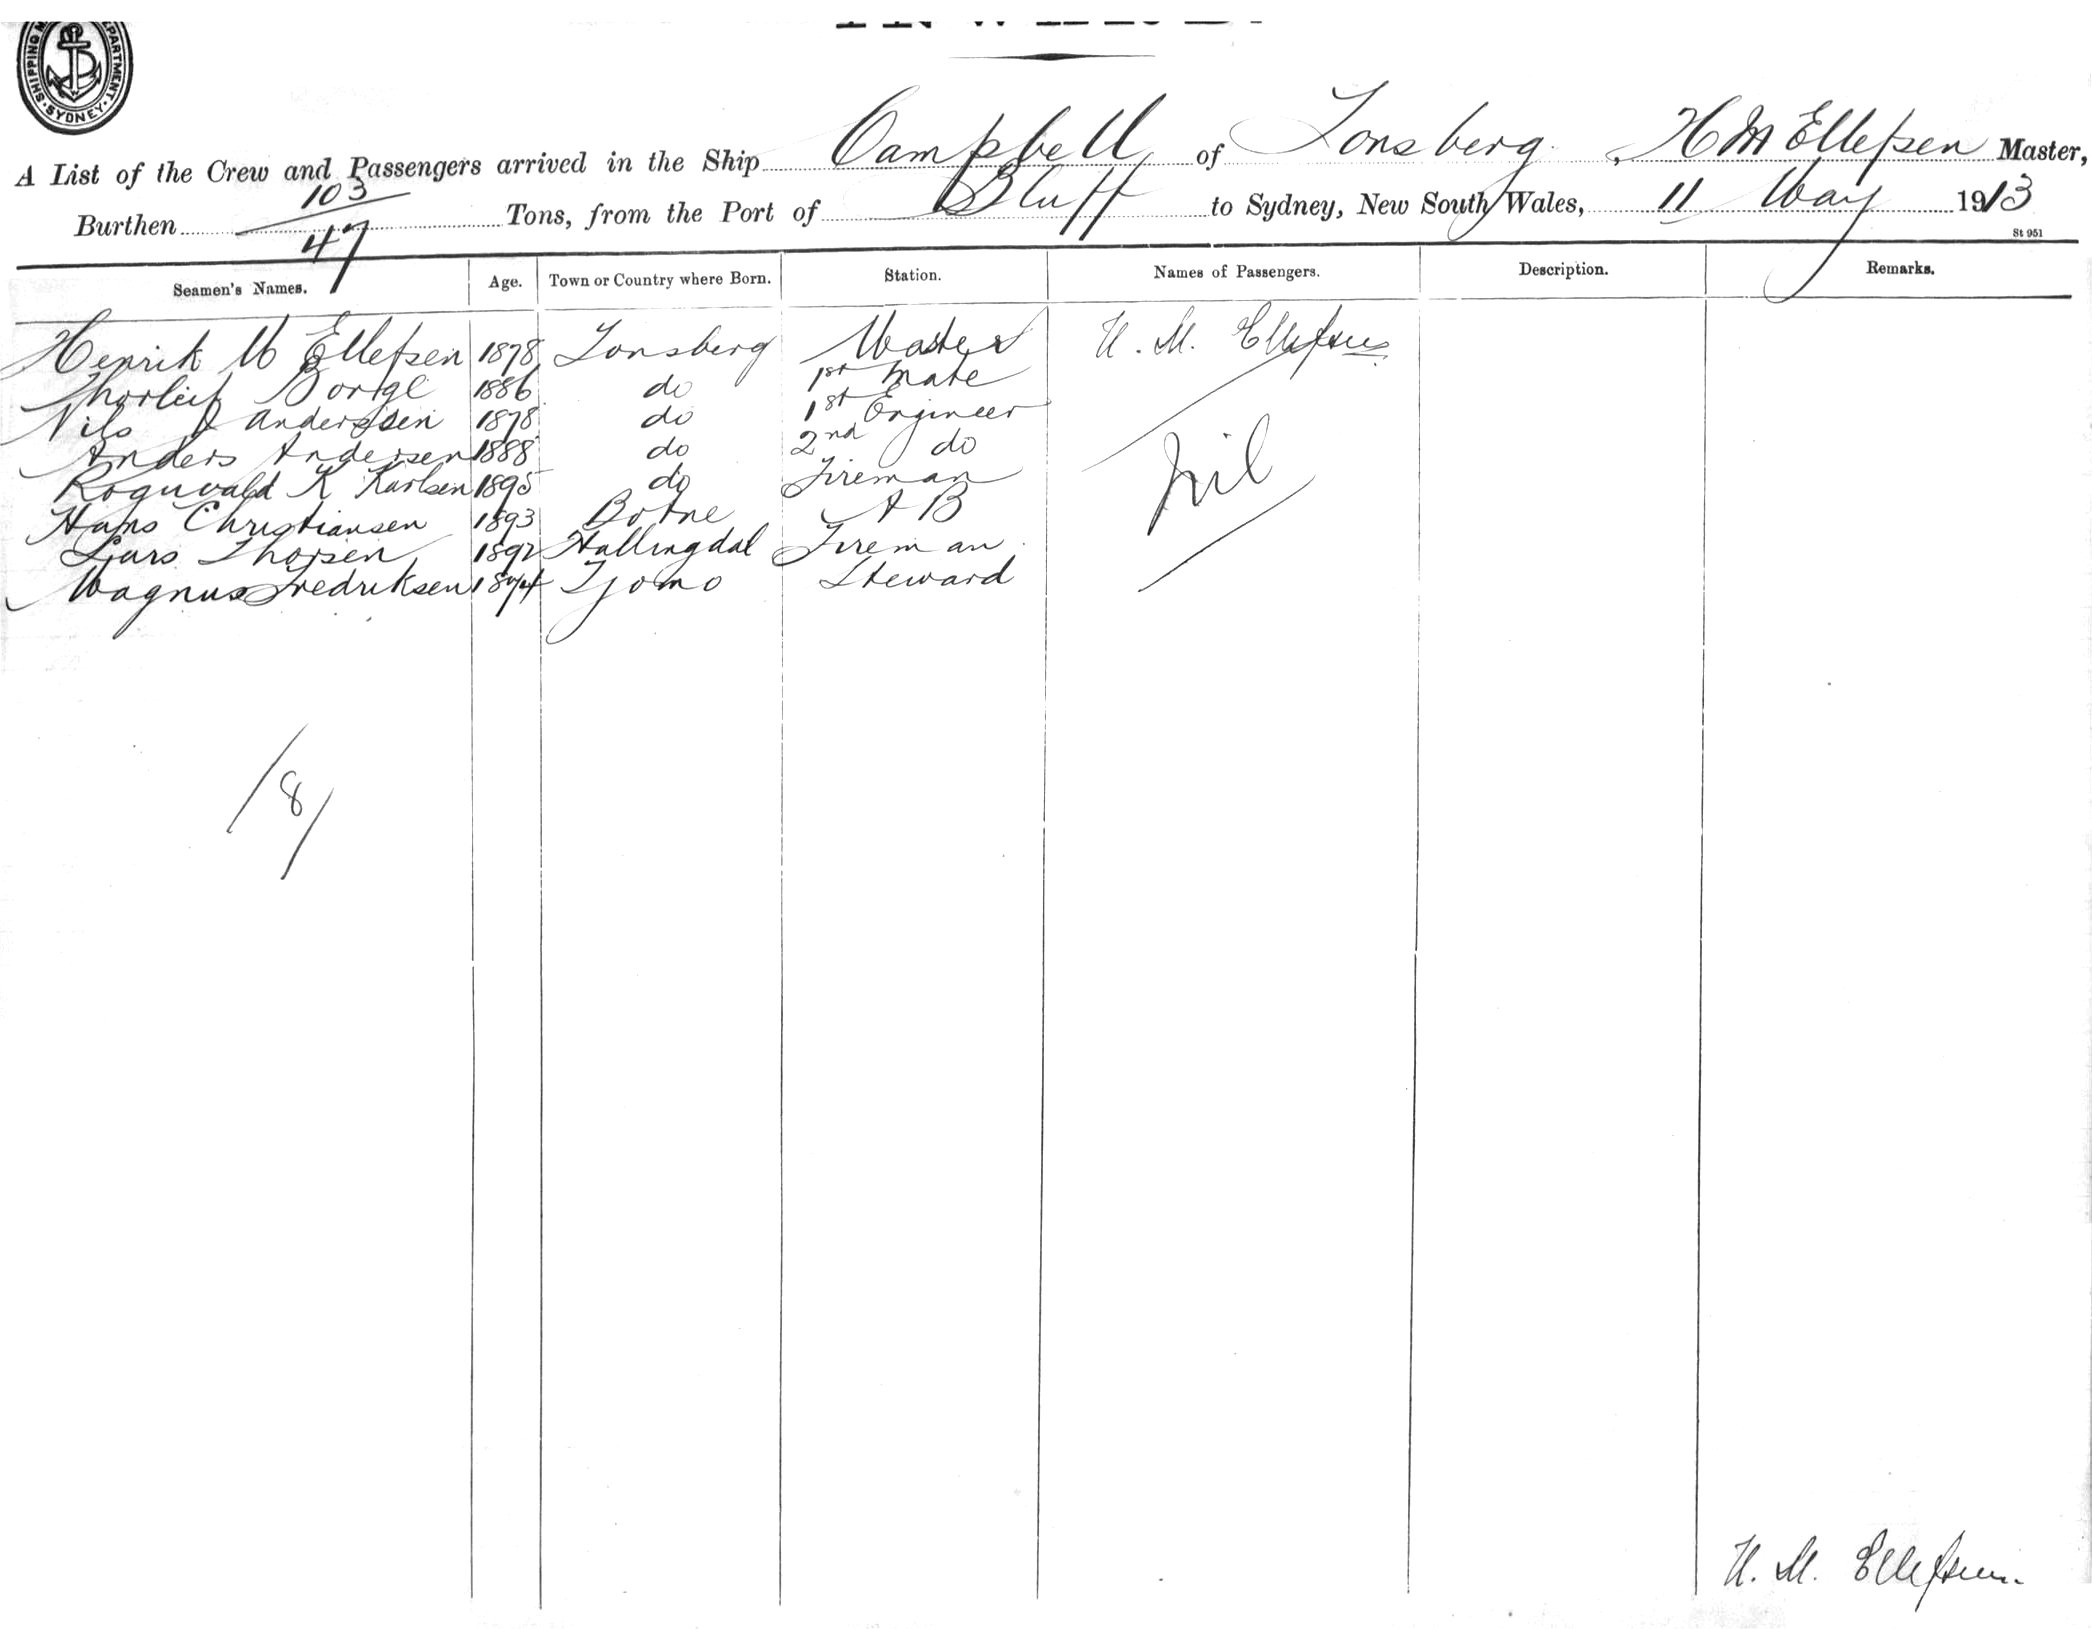 SHIPPING DEPARTMENT SYDNEY
INWARD.
A List of the Crew and Passengers arrived in the Ship Campbell of Tonsberg, H M Ellefsen Master,
Burthen 103/47 Tons, from the Port of Bluff to Sydney, New South Wales, 11 May 1913
St 951
Seamen's Names. Age. Town or Country where Born. Station. Names of Passengers. Description. Remarks.
Henrik M Ellefsen 1878 Tonsberg Master H. M. Ellefsen
Thorleif Borge 1886 do 1st Mate
Nils A Anderssen 1878 do 1st Engineer
Anders Andersen 1888 do 2nd do
Roguvald K Karlsen 1895 do Fireman nil
Hans Christiansen 1893 Botne A B
Lars Thorsen 1892 Hallingdal Fireman
Magnus Fredriksen 1874 Tjomo Steward
/8/
H. M. Ellefsen